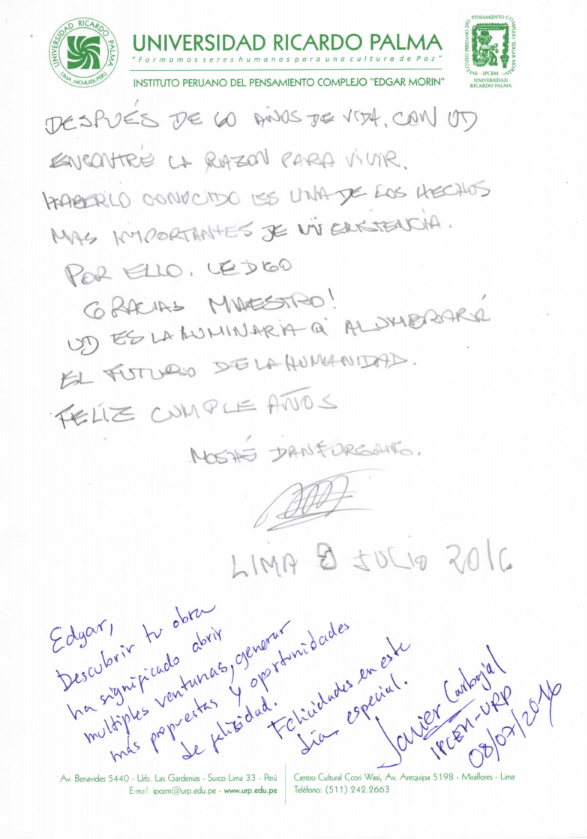 UNIVERSIDAD RICARDO PALMA
LIMA, MCMLXIX, PERÚ
UNIVERSIDAD RICARDO PALMA
"Formamos seres humanos para una cultura de Paz"
INSTITUTO PERUANO DEL PENSAMIENTO COMPLEJO "EDGAR MORIN"
UNIVERSIDAD
RICARDO PALMA
DESPUÉS DE 60 AÑOS DE VIDA, CON UD
ENCONTRÉ LA RAZON PARA VIVIR.
HABERLO CONOCIDO ES UNA DE LOS HECHOS
MAS IMPORTANTES DE MI EXISTENCIA.
POR ELLO, LE DIGO
GRACIAS MAESTRO!
UD ES LA LUMINARIA Q' ALUMBRARÁ
EL FUTURO DE LA HUMANIDAD.
FELIZ CUMPLE AÑOS
MOSHÉ DAN FURGANG.
LIMA 8 JULIO 2016
Edgar,
Descubrir tu obra
ha significado abrir
multiples ventanas, generar
más propuestas y oportunidades
de felicidad.
Felicidades en este
día especial.
Javier Carbajal
IPCEM-URP
08/07/2016
Av. Benavides 5440 - Urb. Las Gardenias - Surco Lima 33 - Perú
E-mail: ipcem@urp.edu.pe - www.urp.edu.pe
Centro Cultural Ccori Wasi, Av. Arequipa 5198 - Miraflores - Lima
Teléfono: (511) 242.2663